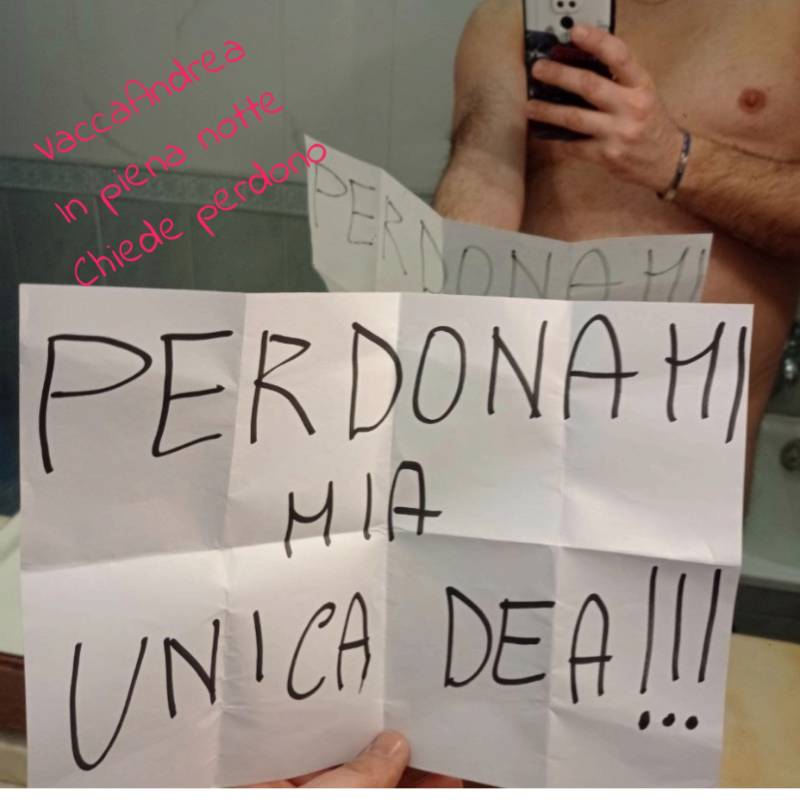 vaccaAndrea
In piena notte
Chiede perdono
PERDONAMI
PERDONAMI
MIA
UNICA DEA!!!